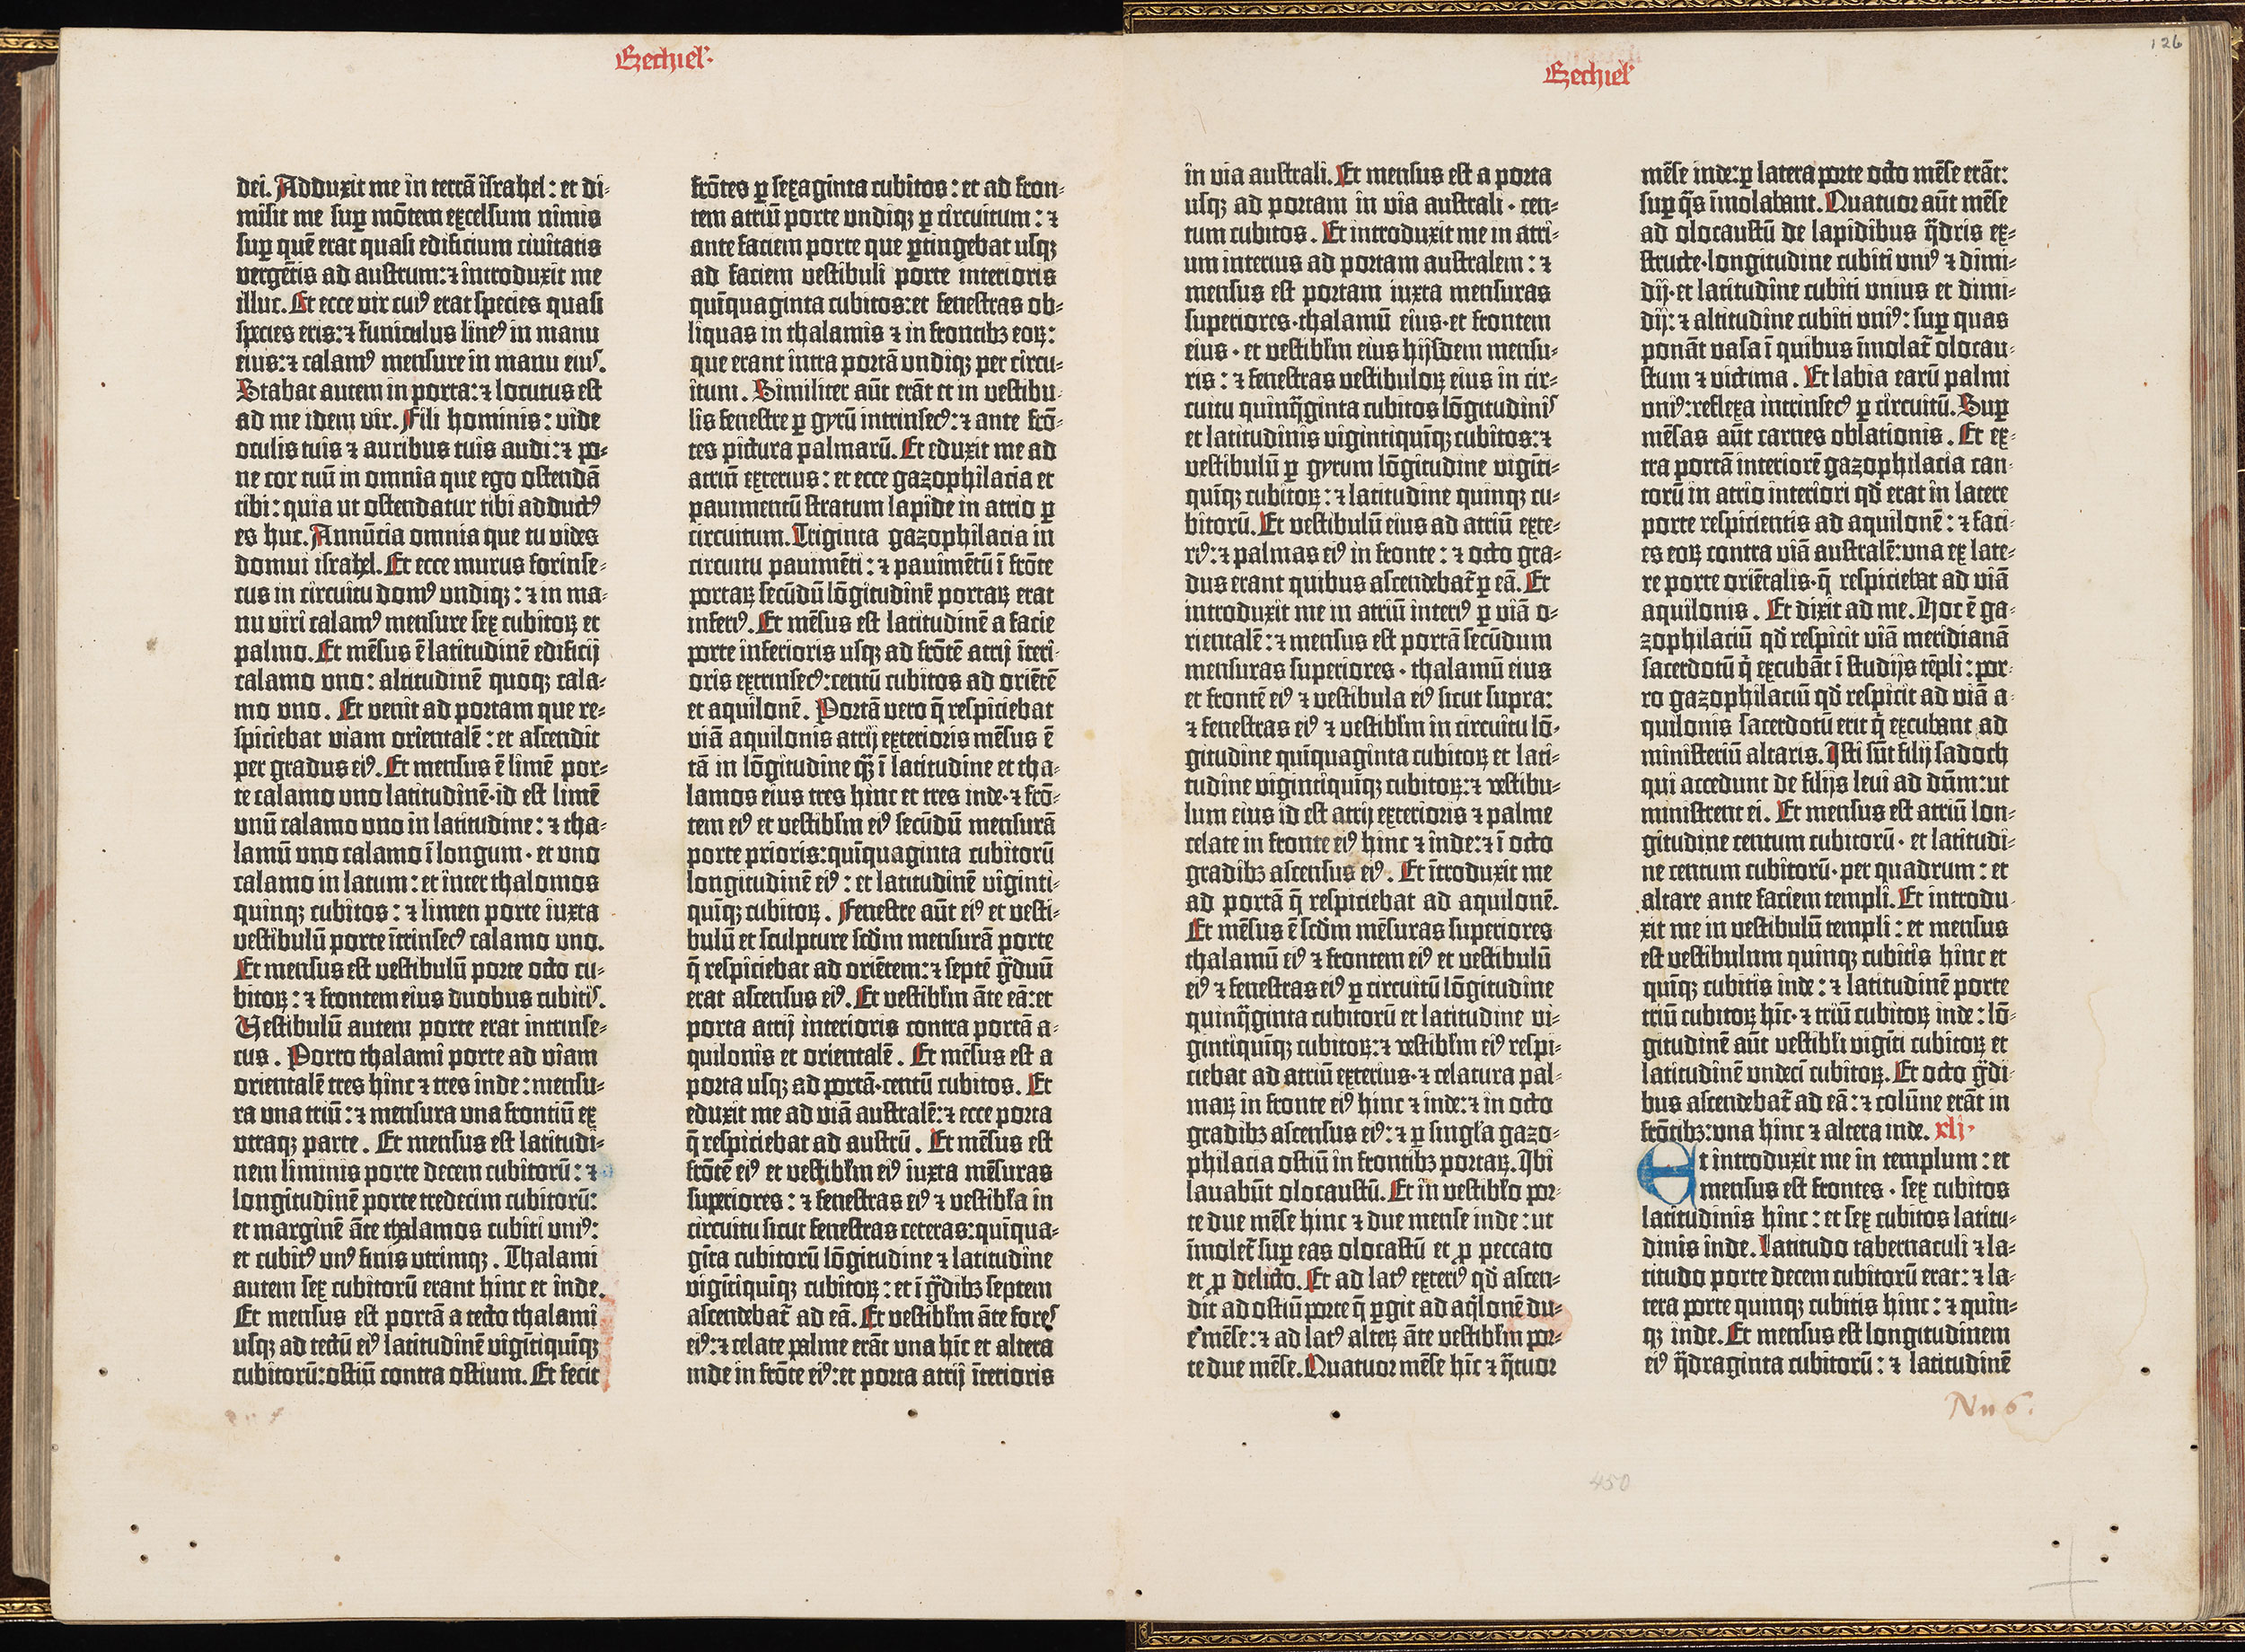 Ezechiel·
dei. Adduxit me in terrā israhel : et di-
misit me sup̄ mōtem excelsum nimis
sup̄ quē erat quasi edificium civitatis
vergētis ad austrum: ⁊ introduxit me
illuc. Et ecce vir cuiꝰ erat species quasi
species eris: ⁊ funiculus lineꝰ in manu
eius: ⁊ calamꝰ mensure in manu eiuſ.
Stabat autem in porta: ⁊ locutus est
ad me idem vir. Fili hominis: vide
oculis tuis ⁊ auribus tuis audi: ⁊ po-
ne cor tuū in omnia que ego ostendā
tibi: quia ut ostendatur tibi adductꝰ
es huc. Annūcia omnia que tu vides
domui israhel. Et ecce murus forinse-
cus in circuitu domꝰ undiqꝫ: ⁊ in ma-
nu viri calamꝰ mensure sex cubitoꝝ et
palmo. Et mēsus ē latitudinē edificij
calamo uno: altitudinē quoqꝫ cala-
mo uno. Et venit ad portam que re-
spiciebat viam orientalē: et ascendit
per gradus eiꝰ. Et mensus ē limē por-
te calamo uno latitudinē·id est limē
unū calamo uno in latitudine: ⁊ tha-
lamū uno calamo ī longum· et uno
calamo in latum: et inter thalomos
quinqꝫ cubitos: ⁊ limen porte iuxta
vestibulū porte ītrinsecꝰ calamo uno.
Et mensus est vestibulū porte octo cu-
bitoꝝ: ⁊ frontem eius duobus cubitiſ.
Vestibulū autem porte erat intrinse-
cus. Porro thalami porte ad viam
orientalē tres hinc ⁊ tres inde: mensu-
ra una triū: ⁊ mensura una frontiū ex
utraqꝫ parte. Et mensus est latitudi-
nem liminis porte decem cubitorū: ⁊
longitudinē porte tredecim cubitorū:
et marginē āte thalamos cubiti uniꝰ:
et cubitꝰ unꝰ finis utrimqꝫ. Thalami
autem sex cubitorū erant hinc et inde.
Et mensus est portā a tecto thalami
usqꝫ ad tectū eiꝰ latitudinē vigītiquīqꝫ
cubitorū: ostiū contra ostium. Et fecit
frōtes ꝑ sexaginta cubitos: et ad fron-
tem atriū porte undiqꝫ ꝑ circuitum: ⁊
ante faciem porte que ꝑtingebat usqꝫ
ad faciem vestibuli porte interioris
quīquaginta cubitos: et fenestras ob-
liquas in thalamis ⁊ in frontibꝫ eoꝝ:
que erant intra portā undiqꝫ per circu-
itum. Similiter aūt erāt et in vestibu-
lis fenestre ꝑ gyrū intrinsecꝰ: ⁊ ante frō-
tes pictura palmarū. Et eduxit me ad
atriū exterius: et ecce gazophilacia et
pavimentū stratum lapide in atrio ꝑ
circuitum. Triginta gazophilacia in
circuitu pavimēti: ⁊ pavimētū ī frōte
portaꝝ secūdū lōgitudinē portaꝝ erat
inferiꝰ. Et mēsus est latitudinē a facie
porte inferioris usqꝫ ad frōtē atrij īteri-
oris extrinsecꝰ: centū cubitos ad oriētē
et aquilonē. Portā vero q̄ respiciebat
viā aquilonis atrij exterioris mēsus ē
tā in lōgitudine q̄ȝ ī latitudine et tha-
lamos eius tres hinc et tres inde·⁊ frō-
tem eiꝰ et vestibłm eiꝰ secūdū mensurā
porte prioris: quīquaginta cubitorū
longitudinē eiꝰ: et latitudinē viginti-
quīqꝫ cubitoꝝ. Fenestre aūt eiꝰ et vesti-
bulū et sculpture scđm mensurā porte
q̄ respiciebat ad oriētem: ⁊ septē gͣduū
erat ascensus eiꝰ. Et vestibłm āte eā: et
porta atrij interioris contra portā a-
quilonis et orientalē. Et mēsus est a
porta usqꝫ ad portā·centū cubitos. Et
eduxit me ad viā australē: ⁊ ecce porta
q̄ respiciebat ad austrū. Et mēsus est
frōtē eiꝰ et vestibłm eiꝰ iuxta mēsuras
superiores: ⁊ fenestras eiꝰ ⁊ vestibła in
circuitu sicut fenestras ceteras: quīqua-
gīta cubitorū lōgitudine ⁊ latitudine
vigītiquīqꝫ cubitoꝝ: et ī gͣdibꝫ septem
ascendebat̄ ad eā. Et vestibłm āte foreſ
eiꝰ: ⁊ celate palme erāt una hīc et altera
inde in frōte eiꝰ: et porta atrij īterioris
126
Ezechiel·
in via australi. Et mensus est a porta
usqꝫ ad portam in via australi· cen-
tum cubitos. Et introduxit me in atri-
um interius ad portam australem: ⁊
mensus est portam iuxta mensuras
superiores·thalamū eius·et frontem
eius· et vestibłm eius hijsdem mensu-
ris: ⁊ fenestras vestibuloꝝ eius in cir-
cuitu quinqͣginta cubitos lōgitudiniſ
et latitudinis vigintiquīqꝫ cubitos: ⁊
vestibulū ꝑ gyrum lōgitudine vigīti-
quīqꝫ cubitoꝝ: ⁊ latitudine quinqꝫ cu-
bitorū. Et vestibulū eius ad atriū exte-
riꝰ: ⁊ palmas eiꝰ in fronte: ⁊ octo gra-
dus erant quibus ascendebat̄ ꝑ eā. Et
introduxit me in atriū interiꝰ ꝑ viā o-
rientalē: ⁊ mensus est portā secūdum
mensuras superiores· thalamū eius
et frontē eiꝰ ⁊ vestibula eiꝰ sicut supra:
⁊ fenestras eiꝰ ⁊ vestibłm in circuitu lō-
gitudine quīquaginta cubitoꝝ et lati-
tudine vigintiquīqꝫ cubitoꝝ: ⁊ vestibu-
lum eius id est atrij exterioris ⁊ palme
celate in fronte eiꝰ hinc ⁊ inde: ⁊ ī octo
gradibꝫ ascensus eiꝰ. Et ītroduxit me
ad portā q̄ respiciebat ad aquilonē.
Et mēsus ē scđm mēsuras superiores
thalamū eiꝰ ⁊ frontem eiꝰ et vestibulū
eiꝰ ⁊ fenestras eiꝰ ꝑ circuitū lōgitudine
quinqͣginta cubitorū et latitudine vi-
gintiquīqꝫ cubitoꝝ: ⁊ vestibłm eiꝰ respi-
ciebat ad atriū exterius·⁊ celatura pal-
maꝝ in fronte eiꝰ hinc ⁊ inde: ⁊ in octo
gradibꝫ ascensus eiꝰ: ⁊ ꝑ singła gazo-
philacia ostiū in frontibꝫ portaꝝ. Ibi
lavabūt olocaustū. Et in vestibło por-
te due mēse hinc ⁊ due mense inde: ut
īmolet̄ sup̄ eas olocastū et ꝓ peccato
et ꝓ delicto. Et ad latꝰ exteriꝰ qđ ascen-
dit ad ostiū porte q̄ ꝑgit ad aq̇lonē du-
e mēse: ⁊ ad latꝰ alteꝝ āte vestibłm por-
te due mēse. Quatuor mēse hīc ⁊ qͣtuor
mēse inde: ꝑ latera porte octo mēse erāt:
sup̄ q̄s īmolabant. Quatuor aūt mēse
ad olocaustū de lapidibus qͣdris ex-
structe·longitudine cubiti uniꝰ ⁊ dimi-
dij·et latitudine cubiti unius et dimi-
dij: ⁊ altitudine cubiti uniꝰ: sup̄ quas
ponāt vasa ī quibus īmolat̄ olocau-
stum ⁊ victima. Et labia earū palmi
uniꝰ: reflexa intrinsecꝰ ꝑ circuitū. Sup̄
mēsas aūt carnes oblationis. Et ex-
tra portā interiorē gazophilacia can-
torū in atrio interiori qđ erat in latere
porte respicientis ad aquilonē: ⁊ faci-
es eoꝝ contra viā australē: una ex late-
re porte oriētalis·q̄ respiciebat ad viā
aquilonis. Et dixit ad me. Hoc ē ga-
zophilaciū qđ respicit viā meridianā
sacerdotū q̇ excubāt ī studijs tēpli: por-
ro gazophilaciū qđ respicit ad viā a-
quilonis sacerdotū erit q̇ excubant ad
ministeriū altaris. Isti sūt filij sadoch
qui accedunt de filijs levi ad dūm: ut
ministrent ei. Et mensus est atriū lon-
gitudine centum cubitorū· et latitudi-
ne centum cubitorū·per quadrum: et
altare ante faciem templi. Et introdu-
xit me in vestibulū templi: et mensus
est vestibulum quinqꝫ cubitis hinc et
quīqꝫ cubitis inde: ⁊ latitudinē porte
triū cubitoꝝ hīc·⁊ triū cubitoꝝ inde: lō-
gitudinē aūt vestibłi vigīti cubitoꝝ et
latitudinē undecī cubitoꝝ. Et octo gͣdi-
bus ascendebat̄ ad eā: ⁊ colūne erāt in
frōtibꝫ: una hinc ⁊ altera inde. xlj·
Et introduxit me in templum: et
mensus est frontes· sex cubitos
latitudinis hinc: et sex cubitos latitu-
dinis inde. Latitudo tabernaculi ⁊ la-
titudo porte decem cubitorū erat: ⁊ la-
tera porte quinqꝫ cubitis hinc: ⁊ quin-
qꝫ inde. Et mensus est longitudinem
eiꝰ qͣdraginta cubitorū: ⁊ latitudinē
Nn 6.
450